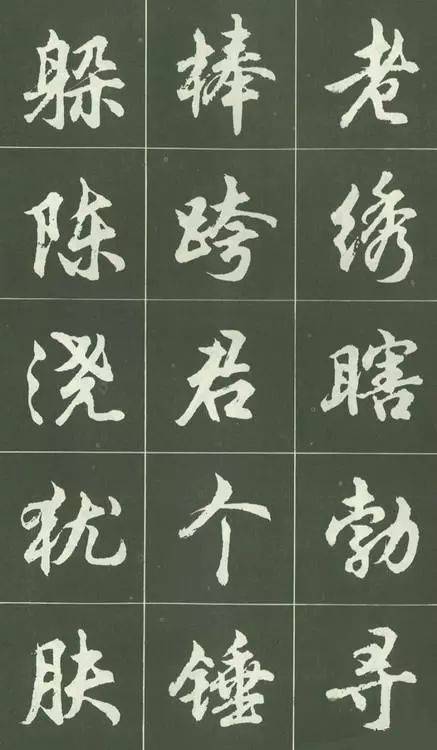 老绣瞎勃寻
棒跨君个锤
躲陈浇犹肤